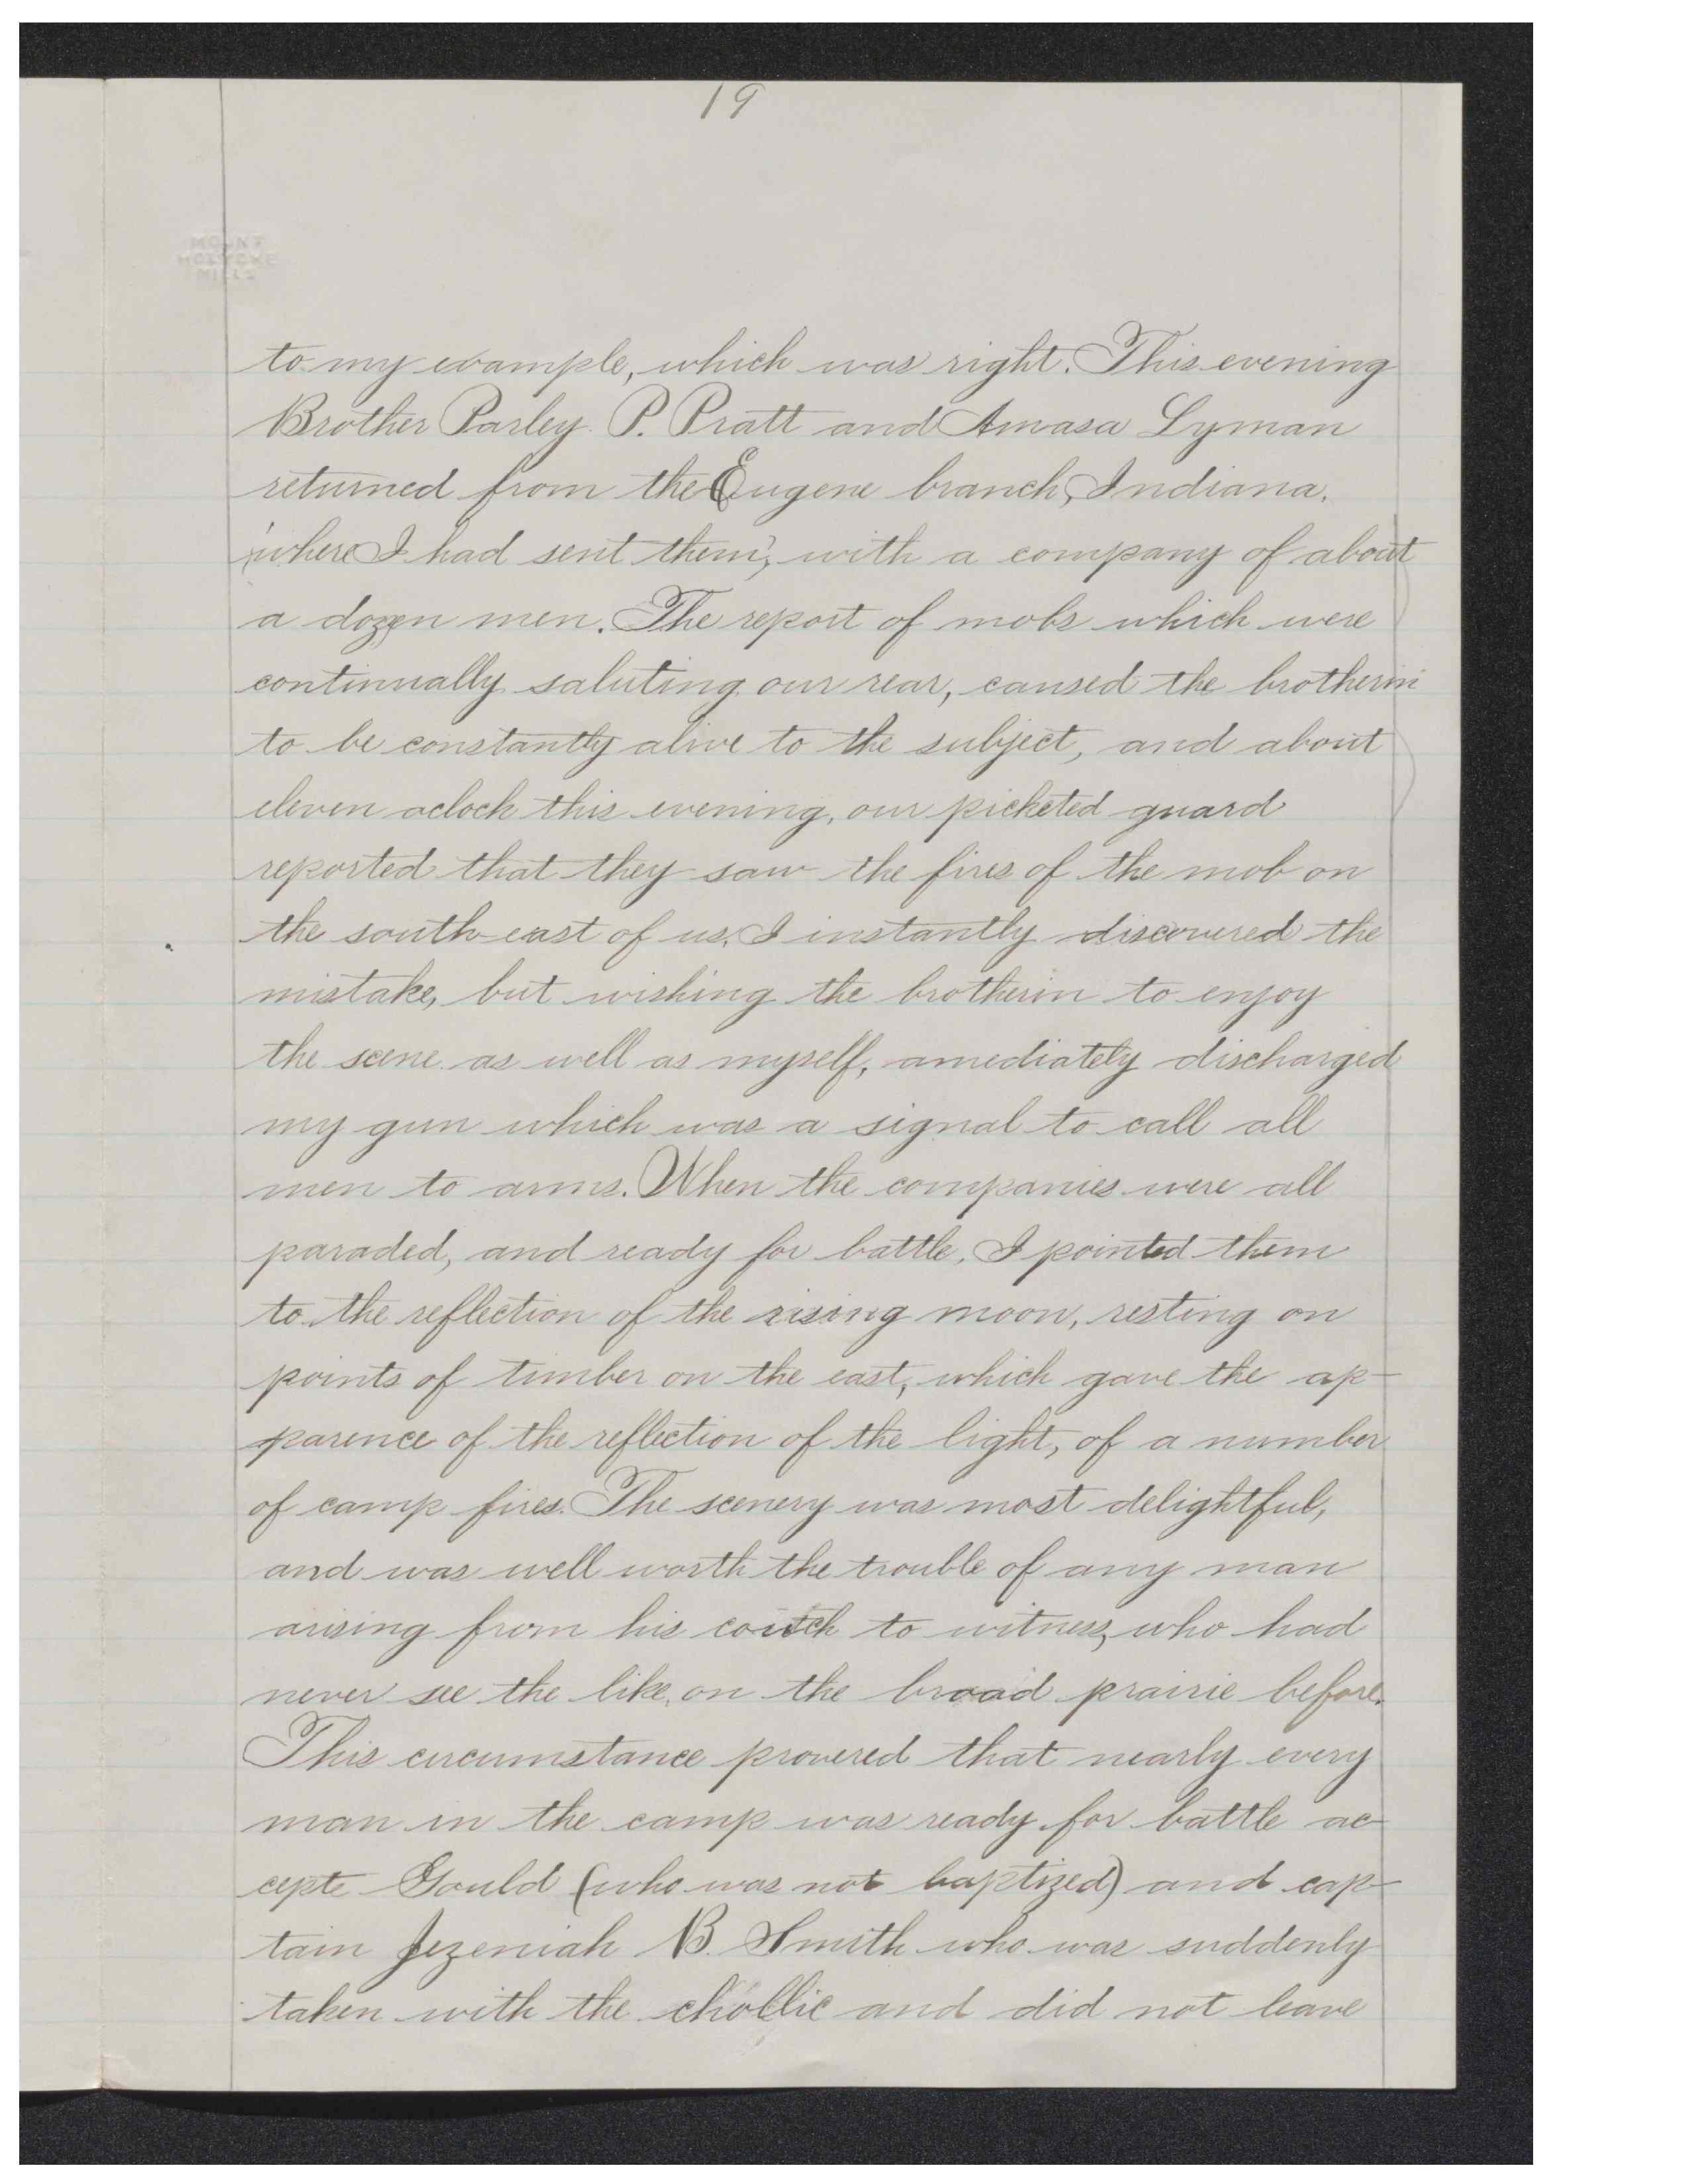 19
MOUNT
HOLYOKE
MILLS
to my example, which was right. This evening
Brother Parley P. Pratt and Amasa Lyman
returned from the Eugene branch, Indiana.
where I had sent them, with a company of about
a dozen men. The report of mobs which were
continually saluting our rear, caused the brotherin
to be constantly alive to the subject, and about
eleven aclock this evening, our picketed guard
reported that they saw the fires of the mob on
the south-east of us, I instantly discovered the
mistake, but wishing the brotherin to enjoy
the scene as well as myself, amediately discharged
my gun which was a signal to call all
men to arms. When the companies were all
paraded, and ready for battle, I pointed them
to the reflection of the rising moon, resting on
points of timber on the east, which gave the ap-
parence of the reflection of the light, of a number
of camp fires. The scenery was most delightful,
and was well worth the trouble of any man
arising from his coutch to witness, who had
never see the like, on the broad prairie before.
This circumstance provered that nearly every
man in the camp was ready for battle ac-
cepte Gould (who was not baptized) and cap-
tain Jezeniah B. Smith who was suddenly
taken with the chollic and did not leave